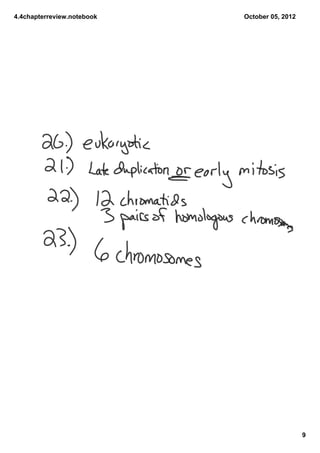 4.4chapterreview.notebook October 05, 2012
20.) eukaryotic
21.) Late duplication or early mitosis
22.) 12 chromatids
3 pairs of homologous
23.) 6 chromosomes
9